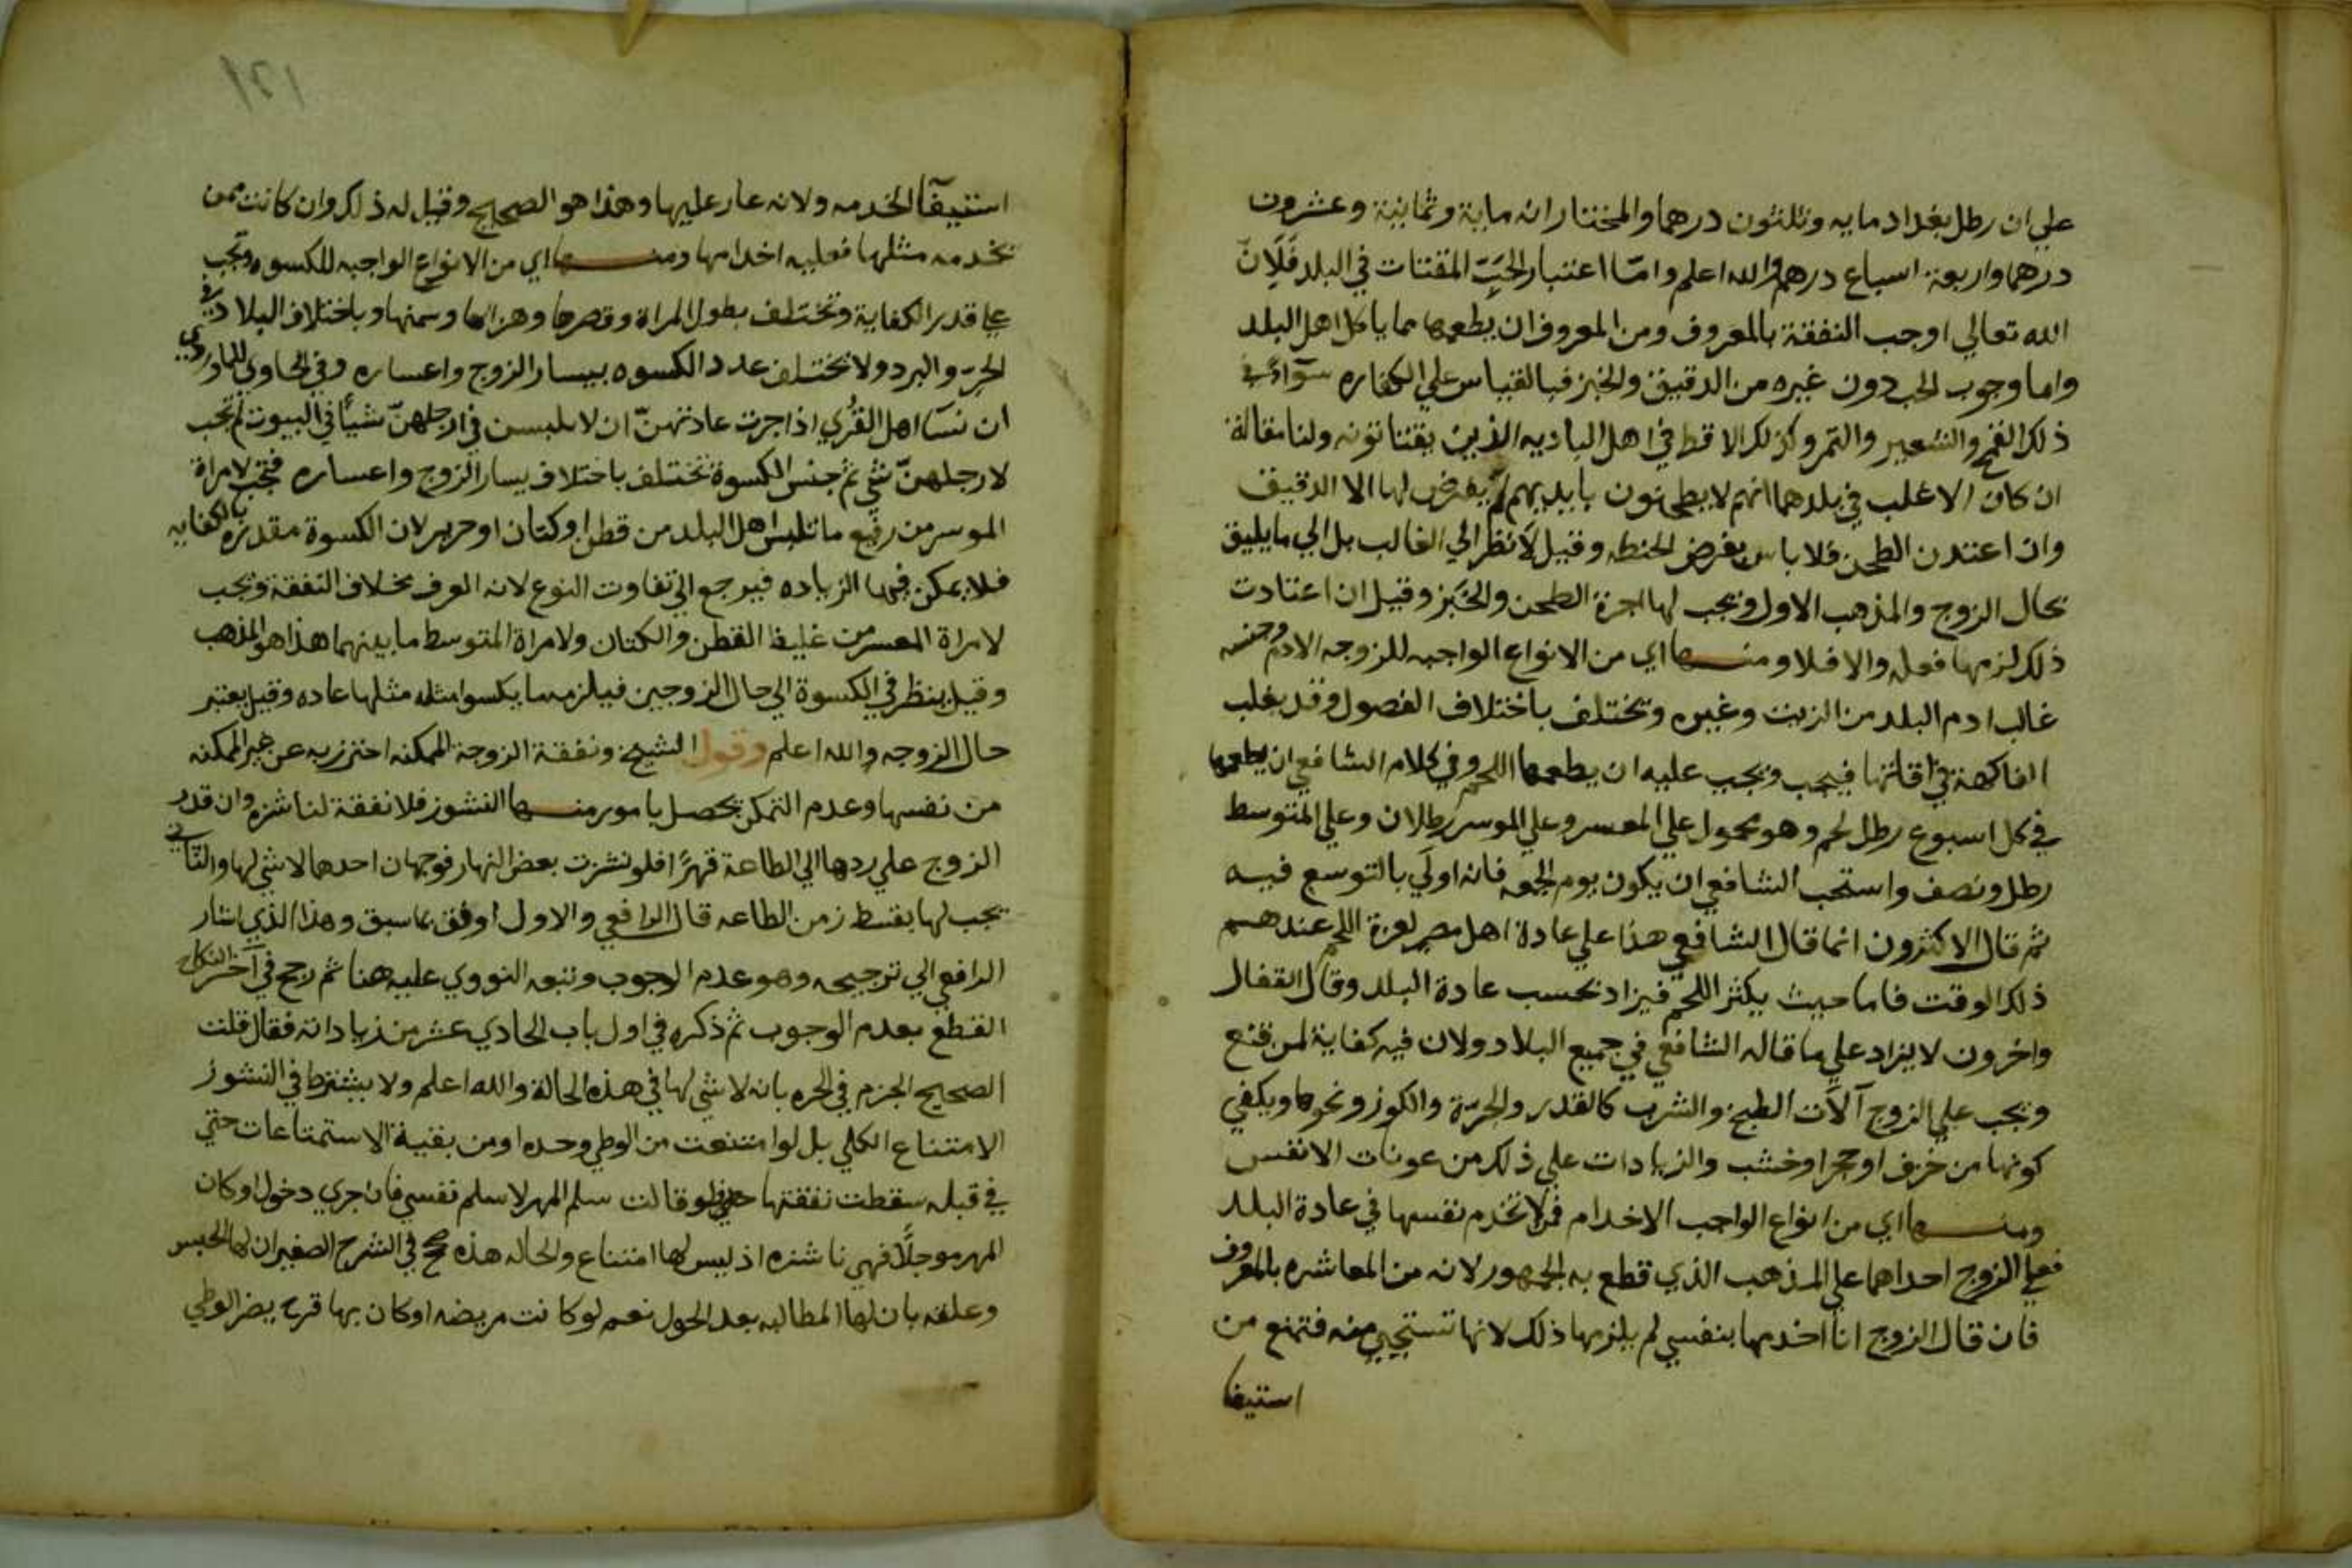 علي ان رطل بغداد مايه وثلثون درهما والمختار انه ماية وثمانية وعشرون
درهما واربعة اسباع درهم والله اعلم وامّا اعتبار الحَبّ المقتات في البلد فَلَانّ
الله تعالي اوجب النفقة بالمعروف ومن المعروف ان يطعمها مما ياكل اهل البلد
واما وجوب الحب دون غيره من الدقيق والخبز فبالقياس علي الكفاره سوآء في
ذلك القمح والشعير والتمر وكذلك الاقط في اهل الباديه الذين يقتاتونه ولنا مقالة
ان كان الاغلب في بلدهما انهم لا يطحنون بايديهم لم يفرض لها الا الدقيق
وان اعتدن الطحن فلا باس بفرض الحنطه وقيل لا نظر الي الغالب بل الي ما يليق
بحال الزوج والمذهب الاول ويجب لها اجرة الطحن والخَبز وقيل ان اعتادت
ذلك لزمها فعله والا فلا ومنها اي من الانواع الواجبه للزوجه الادم وجنسه
غالب ادم البلد من الزيت وغيره وتختلف باختلاف الفصول وقد يغلب
الفاكهة في اوقاتها فيجب ويجب عليه ان يطعمها اللحم وفي كلام الشافعي ان يطعمها
في كل اسبوع رطل لحم وهو محمول علي المعسر وعلي الموسر رطلان وعلي المتوسط
رطل ونصف واستحب الشافعي ان يكون يوم الجمعه فانه اولَي بالتوسع فيه
ثم قال الاكثرون انما قال الشافعي هذا علي عادة اهل مصر لعزة اللحم عندهم
ذلك الوقت فاما حيث يكثر اللحم فيزاد بحسب عادة البلد وقال القفال
واخرون لا يزاد علي ما قاله الشافعي في جميع البلاد ولان فيه كفاية لمن قنع
ويجب علي الزوج آلات الطبخ والشرب كالقدر والجرّة والكوز ونحوها ويكفي
كونها من خزف او حجر او خشب والزيادات علي ذلك من عونات الانفس
ومنها اي من انواع الواجب الاخدام فمن لا تخدم نفسها في عادة البلد
فعلي الزوج اخدامها علي المذهب الذي قطع به الجمهور لانه من المعاشره بالمعروف
فان قال الزوج انا اخدمها بنفسي لم يلزمها ذلك لانها تستحيي منه فتمنع من
استيفا
استيفآ الخدمه ولانه عار عليها وهذا هو الصحيح وقيل له ذلك وان كانت ممن
تخدمه مثلها فعليه اخدامها ومنها اي من الانواع الواجبه للكسوه وتجب
علي قدر الكفاية وتختلف بطول المراة وقصرها وهزالها وسمنها وباختلاف البلاد في
الحرّ والبرد ولا تختلف عدد الكسوه بيسار الزوج واعساره وفي الحاوي للماوردي
ان نسا اهل القُري اذا جرت عادتهنّ ان لا يلبسن في ارجلهنّ شيأ في البيوت لم تجب
لارجلهنّ شي ثم جنس الكسوة تختلف باختلاف يسار الزوج واعساره فتجب لامراة
الموسر من رفيع ما تلبس اهل البلد من قطن او كتان او حرير لان الكسوة مقدره بالكفايه
فلا يمكن فيها الزياده فيرجع الي تفاوت النوع لانه العرف بخلاف النفقة ويجب
لامراة المعسر من غليظ القطن والكتان ولامراة المتوسط ما بينهما هذا هو المذهب
وقيل ينظر في الكسوة الي حال الزوجين فيلزمه ما يكسوا مثله مثلها عاده وقيل يعتبر
حال الزوجه والله اعلم وقول الشيخ ونفقة الزوجة الممكنه احترز به عن غير الممكنه
من نفسها وعدم التمكن يحصل بامور منها النشوز فلا نفقة لناشزه وان قدر
الزوج علي ردها الي الطاعة قهرًا فلو نشزت بعض النهار فوجهان احدهما لا شي لها والثاني
يجب لها بقسط زمن الطاعه قال الرافعي والاول اوفق بما سبق وهذا الذي اشار
الرافعي الي ترجيحه وهو عدم الوجوب وتبعه النووي عليه هنا ثم رجح في آخر النكاح
القطع بعدم الوجوب ثم ذكره في اول باب الحادي عشر من زياداته فقال قلت
الصحيح الجزم في الحره بانه لا شي لها في هذه الحالة والله اعلم ولا يشترط في النشوز
الامتناع الكلي بل لو امتنعت من الوطي وحده او من بقية الاستمتاعات حتي
في قبله سقطت نفقتها حتي لو قالت سلم المهر لاسلم نفسي فان جري دخول او كان
المهر موجلًا فهي ناشزه اذ ليس لها امتناع والحاله هذه صح في الشرح الصغير ان لها الحبس
وعلله بان لها المطالبه بعد الحول نعم لو كانت مريضه او كان بها قرح يضر الوطي